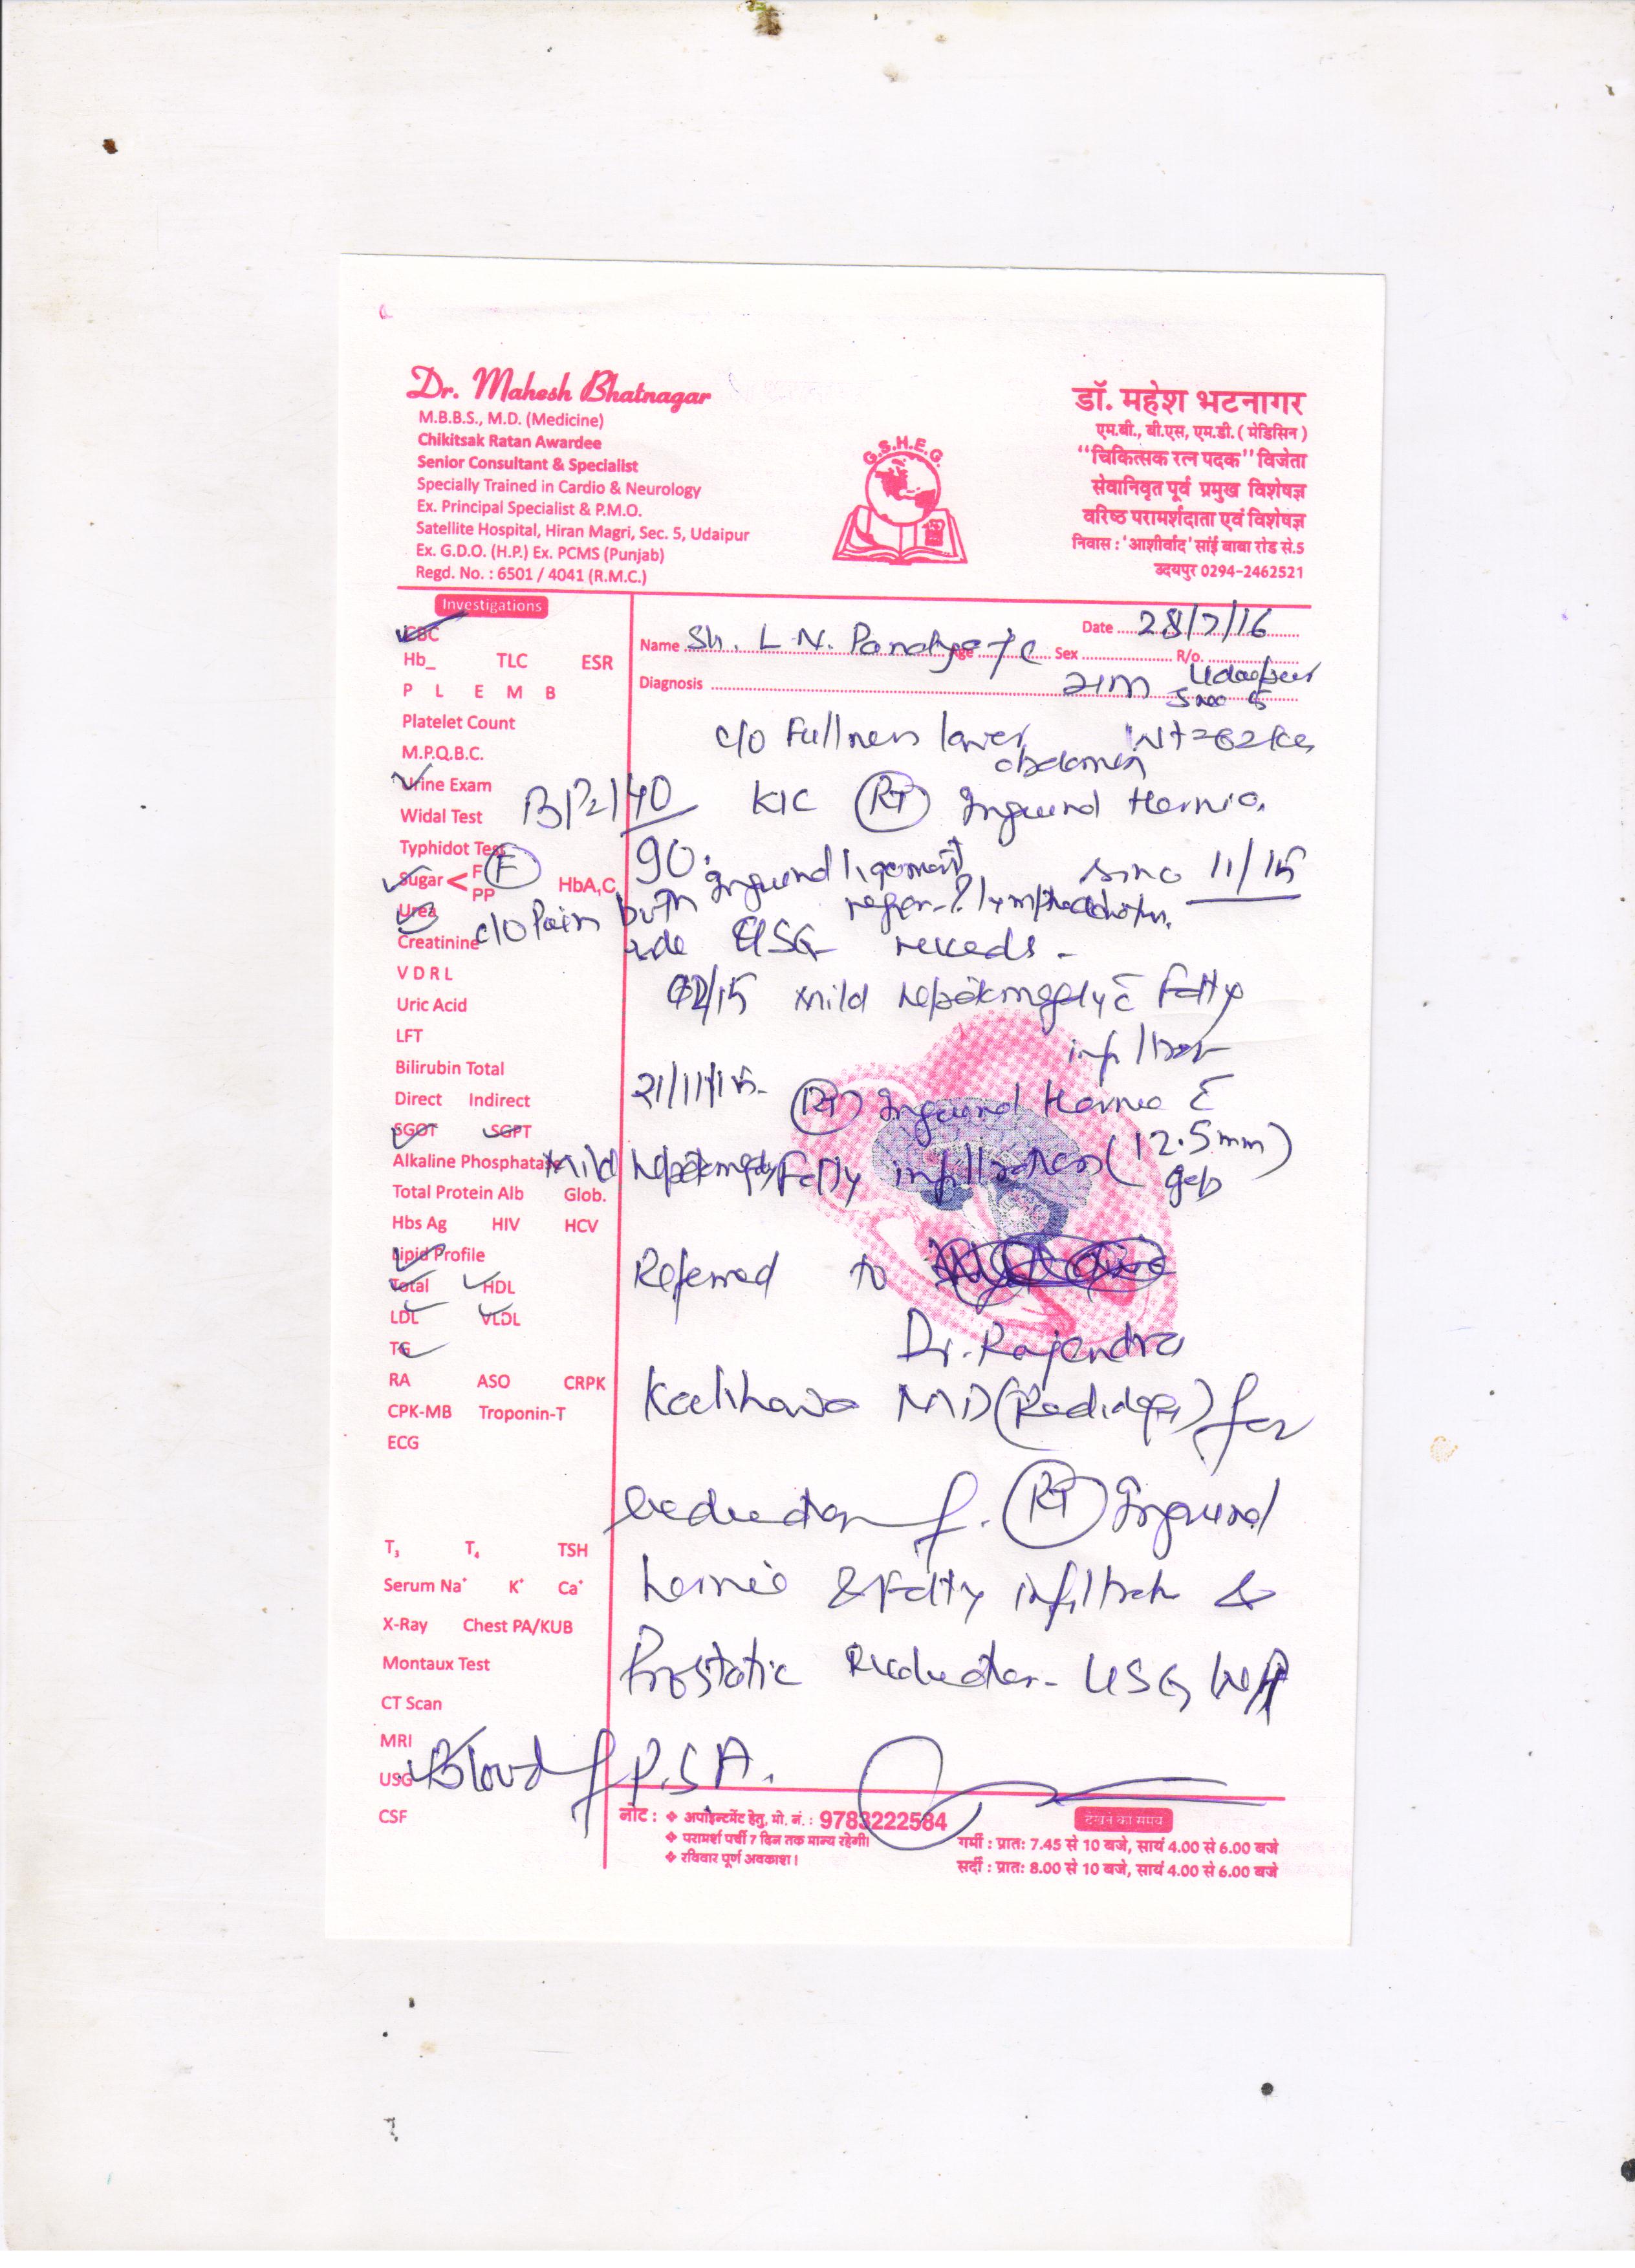 Dr. Mahesh Bhatnagar
M.B.B.S., M.D. (Medicine)
Chikitsak Ratan Awardee
Senior Consultant & Specialist
Specially Trained in Cardio & Neurology
Ex. Principal Specialist & P.M.O.
Satellite Hospital, Hiran Magri, Sec. 5, Udaipur
Ex. G.D.O. (H.P.) Ex. PCMS (Punjab)
Regd. No. : 6501 / 4041 (R.M.C.)
G.S.H.E.G.
डॉ. महेश भटनागर
एम.बी., बी.एस, एम.डी. ( मेडिसिन )
“चिकित्सक रत्न पदक” विजेता
सेवानिवृत पूर्व प्रमुख विशेषज्ञ
वरिष्ठ परामर्शदाता एवं विशेषज्ञ
निवास : ‘आशीर्वाद’ सांई बाबा रोड से.5
उदयपुर 0294-2462521
Investigations
CBC
Hb_ TLC ESR
P L E M B
Platelet Count
M.P.Q.B.C.
Urine Exam
Widal Test
Typhidot Test
Sugar < F
PP HbA,C
Urea
Creatinine
V D R L
Uric Acid
LFT
Bilirubin Total
Direct Indirect
SGOT SGPT
Alkaline Phosphatase
Total Protein Alb Glob.
Hbs Ag HIV HCV
Lipid Profile
Total HDL
LDL VLDL
TG
RA ASO CRPK
CPK-MB Troponin-T
ECG
T₃ T₄ TSH
Serum Na⁺ K⁺ Ca⁺
X-Ray Chest PA/KUB
Montaux Test
CT Scan
MRI
USG
CSF
Date 28/7/16
Name Sh. L. N. Pandya Age Sex R/o. Udaipur
Diagnosis
c/o Fullness lower abdomen Wt = 62 kg
BP = 140/90
K/C RT Inguinal Hernia
since 11/15
c/o Pain both Inguinal ligament
region - ? 
USG records -
02/15 mild hepatomegaly c̄ Fatty
21/11/15 - RT Inguinal Hernia c̄
mild hepatomegaly Fatty infiltration (12.5 mm)
gap
Referred to
Dr. Rajendra
MD (Radiology) for
evaluation of RT Inguinal
hernia & Fatty infiltration &
Prostatic evaluation - USG W/A
Blood f P.S.A.
नोट : ❖ अपॉइन्टमेंट हेतु, मो. नं. : 9783222584
❖ परामर्श पर्ची 7 दिन तक मान्य रहेगी।
❖ रविवार पूर्ण अवकाश।
देखने का समय
गर्मी : प्रातः 7.45 से 10 बजे, सायं 4.00 से 6.00 बजे
सर्दी : प्रातः 8.00 से 10 बजे, सायं 4.00 से 6.00 बजे